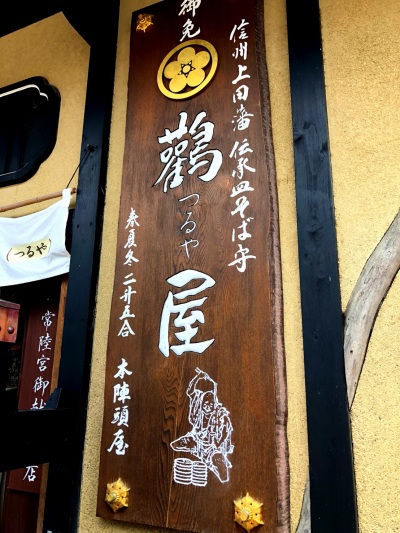 信州上田藩伝承皿そば守
御免
鸛屋
つるや
春夏冬二升五合
本陣頭屋
(つるや)
常陸宮御
店